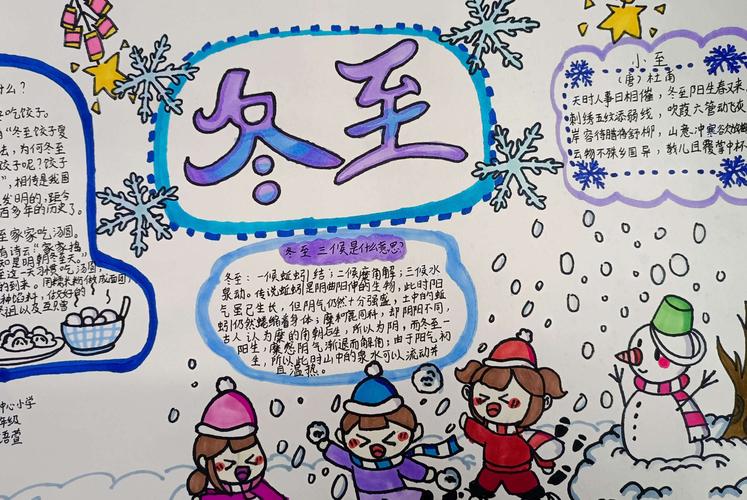 冬至
什么?
吃饺子。
"冬至饺子
法,为何冬至
饺子呢?饺子
",相传是我国
发明的,距今
百多年的历史了。
至家家吃汤圆。
有诗云"家家捣
知是明朝冬至天。"
至这一天习惯吃汤圆,
的到来。用糯米粉做成面团,
种馅料,做好的
祖以及互
中心小学
年级
语萱
冬至三候是什么意思?
冬至:一候蚯蚓结;二候麋角解;三候水
泉动。传说蚯蚓是阴曲阳伸的生物,此时阳
气虽已生长,但阴气仍然十分强盛,土中的蚯
蚓仍然蜷缩着身体;麋和鹿同科,却阴阳不同,
古人认为麋的角朝后生,所以为阴,而冬至一
阳生,麋感阴气渐退而解角;由于阳气初
生,所以此时山中的泉水可以流动并
且温热。
小至
(唐)杜甫
天时人事日相催,冬至阳生春又来。
刺绣五纹添弱线,吹葭六管动飞灰
岸容待腊将舒柳,山意冲寒欲放
云物不殊乡国异,教儿且覆掌中杯